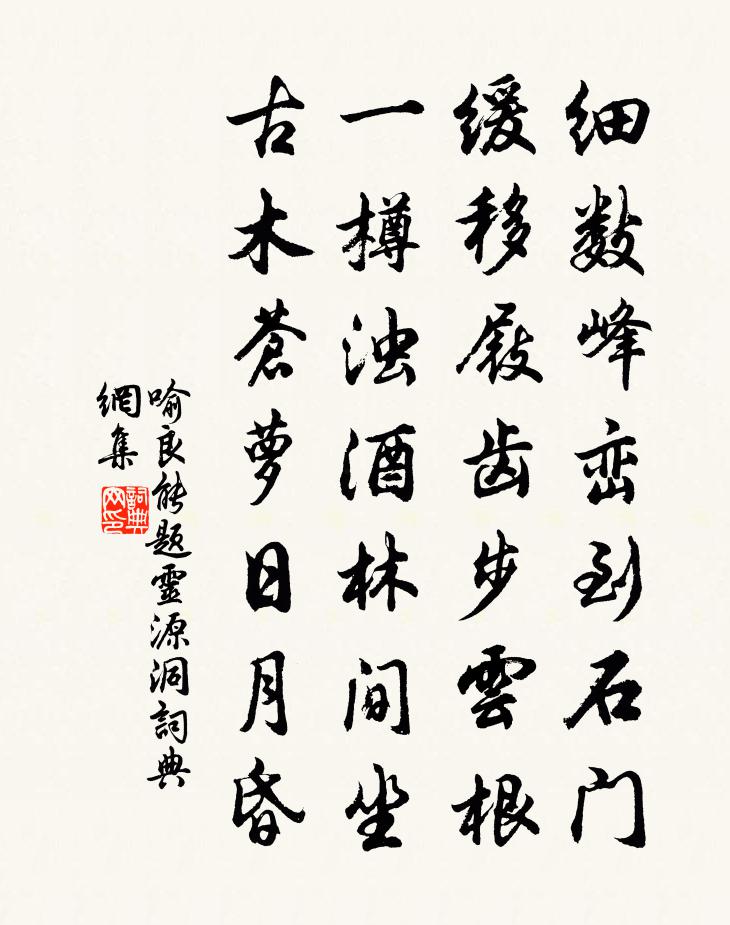 细数峰峦到石门
缓移屐齿步雲根
一樽浊酒林间坐
古木苍萝日月昏
喻良能题靈源洞詞典
網集
詞典
网印